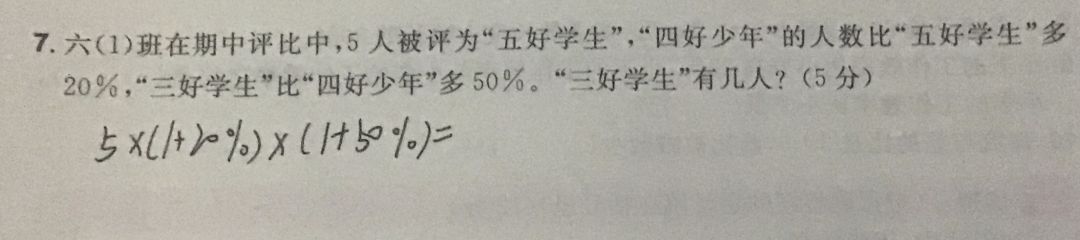 7. 六(1)班在期中评比中,5 人被评为“五好学生”,“四好少年”的人数比“五好学生”多
20%,“三好学生”比“四好少年”多 50%。“三好学生”有几人?(5 分)
5×(1+20%)×(1+50%)=